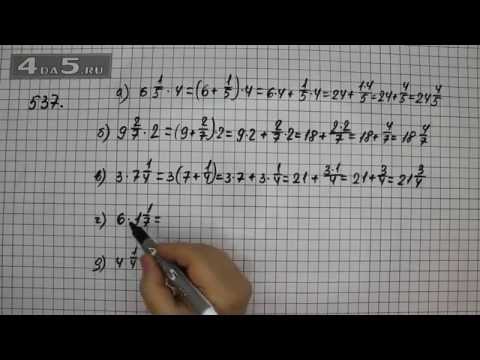 4DA5.RU
537.
а) 6 1/5 · 4 = (6 + 1/5) · 4 = 6·4 + 1/5 · 4 = 24 + 1·4/5 = 24 + 4/5 = 24 4/5
б) 9 2/7 · 2 = (9 + 2/7) 2 = 9·2 + 2/7 · 2 = 18 + 2·2/7 = 18 + 4/7 = 18 4/7
в) 3 · 7 1/4 = 3 (7 + 1/4) = 3·7 + 3 · 1/4 = 21 + 3·1/4 = 21 + 3/4 = 21 3/4
г) 6 · 1 1/7 =
д) 4